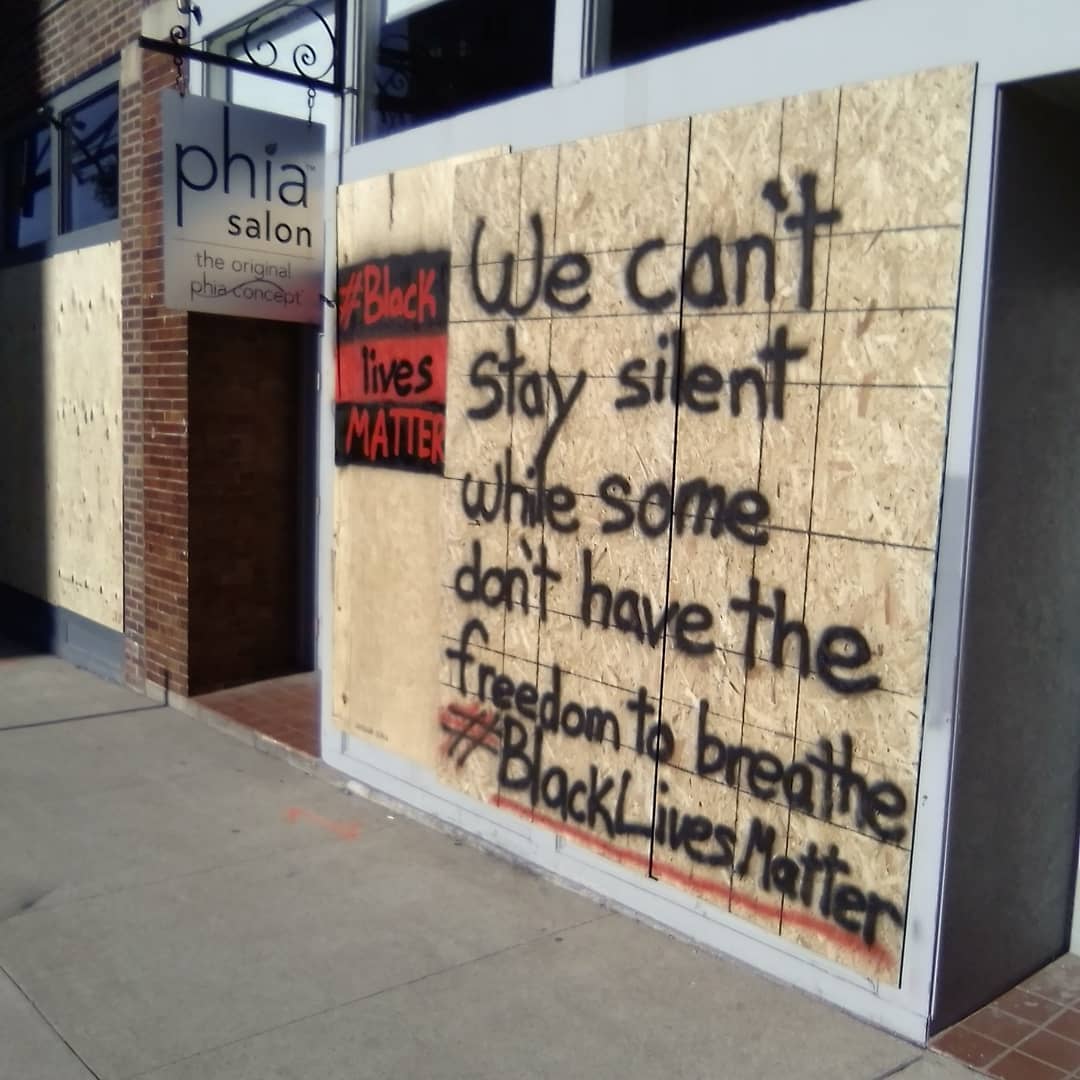 phia™
salon
the original
phia concept
#Black
lives
MATTER
We can't
stay silent
while some
don't have the
freedom to breathe
#BlackLivesMatter